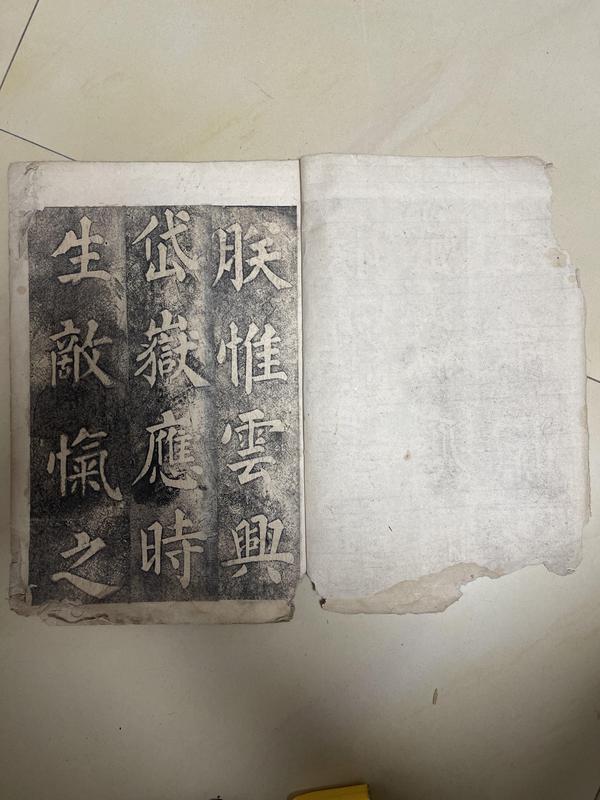 朕惟雲興
岱嶽應時
生敵愾之